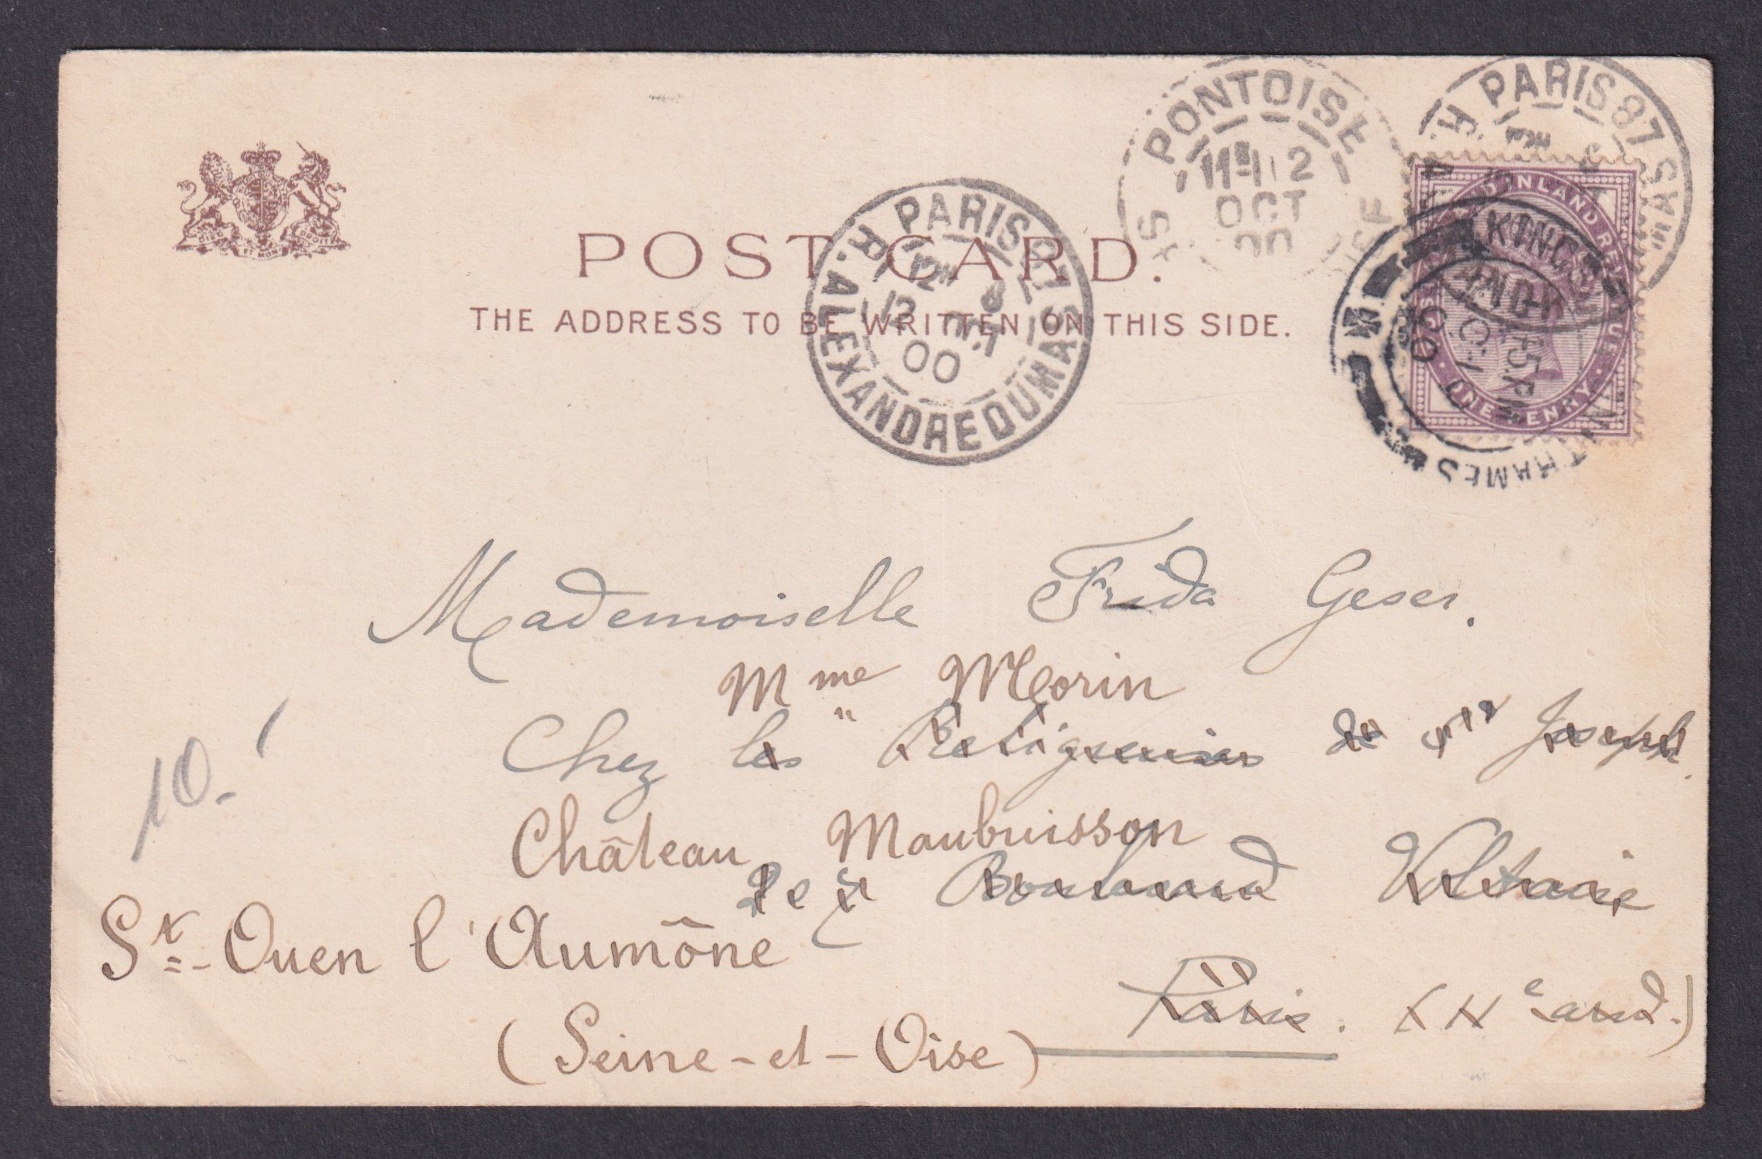 POST CARD.
THE ADDRESS TO BE WRITTEN ON THIS SIDE.
PONTOISE
11 12
OCT
00
PARIS 87
PARIS 87
R. ALEXANDRE DUMAS
12
OCT
00
KINGSTON
THAMES
INLAND REVENUE
ONE PENNY
Mademoiselle Frida Geser.
Mme Morin
Chez les " Religieuses de Joseph
Château Maubuisson
Boulevard Voltaire
St. Ouen l'Aumône
Paris. (XIe arrd.)
(Seine-et-Oise)
10.-